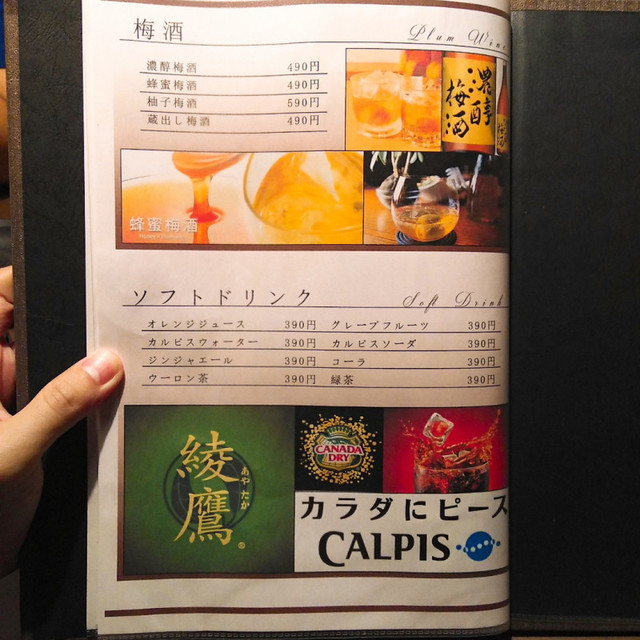 梅酒 Plum Wine
濃醇梅酒 490円
蜂蜜梅酒 490円
柚子梅酒 590円
蔵出し梅酒 490円
濃醇梅酒
蜂蜜梅酒
ソフトドリンク Soft Drink
オレンジジュース 390円 グレープフルーツ 390円
カルピスウォーター 390円 カルピスソーダ 390円
ジンジャエール 390円 コーラ 390円
ウーロン茶 390円 緑茶 390円
綾鷹
あやたか
CANADA
DRY
カラダにピース
CALPIS